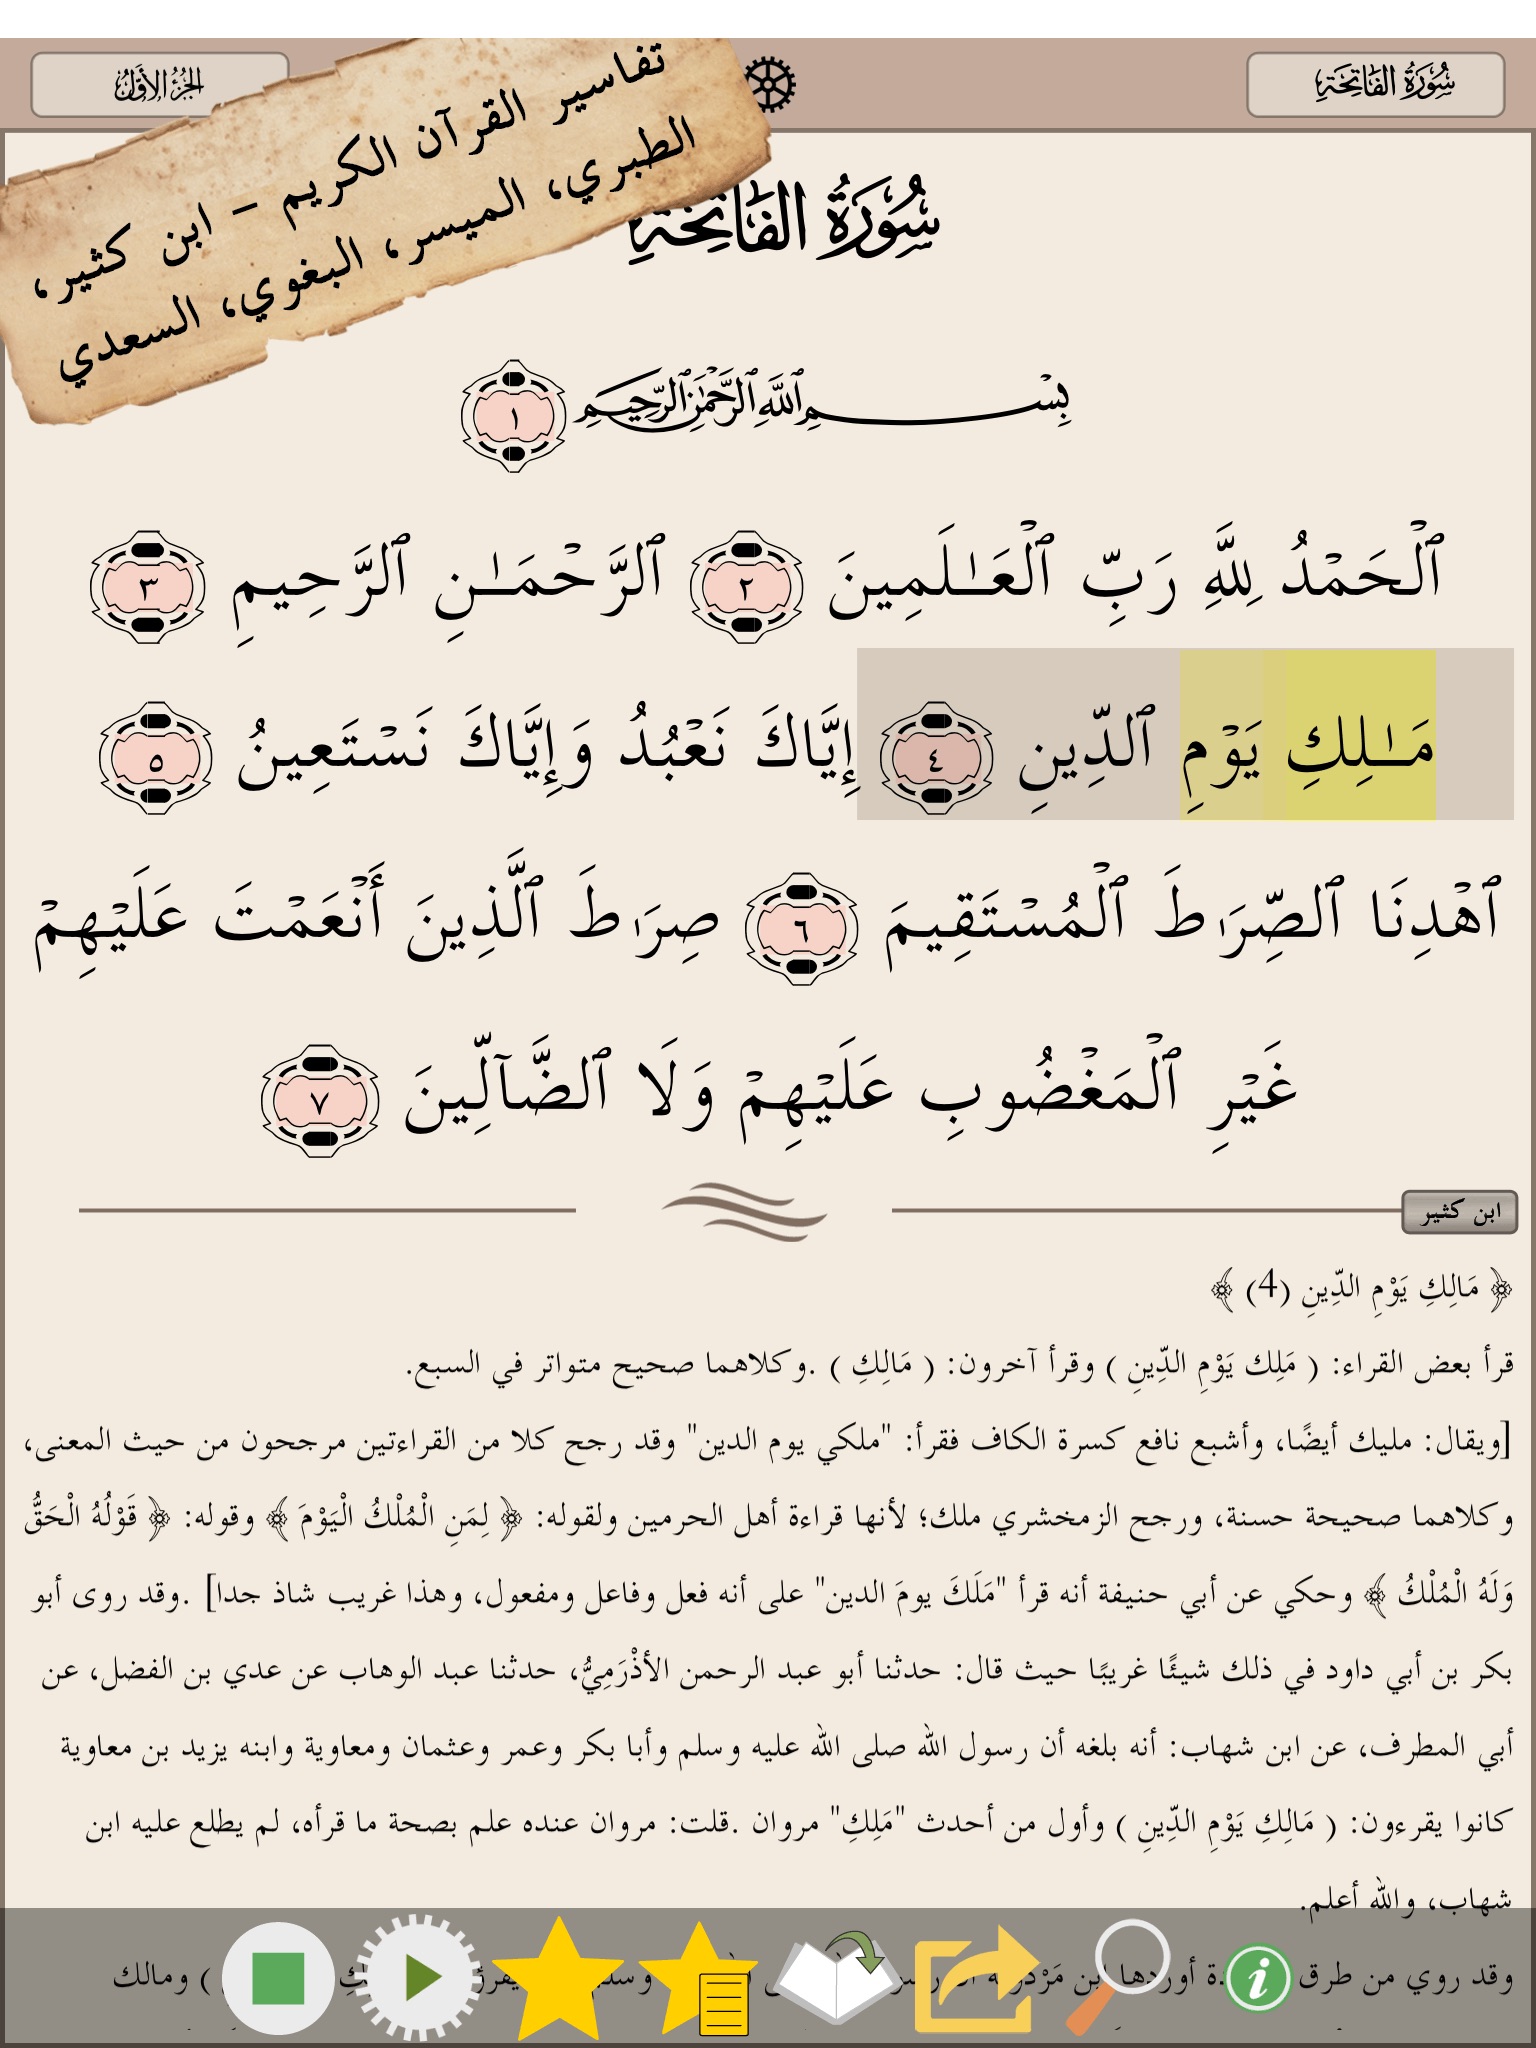 سُورَةُ الفَاتِحَةِ
الجُزْءُ الأَوَّلُ
تفاسير القرآن الكريم - ابن كثير،
الطبري، الميسر، البغوي، السعدي
سُورَةُ الفَاتِحَةِ
بِسْمِ ٱللَّهِ ٱلرَّحْمَٰنِ ٱلرَّحِيمِ ١
ٱلْحَمْدُ لِلَّهِ رَبِّ ٱلْعَـٰلَمِينَ ٢ ٱلرَّحْمَـٰنِ ٱلرَّحِيمِ ٣
مَـٰلِكِ يَوْمِ ٱلدِّينِ ٤ إِيَّاكَ نَعْبُدُ وَإِيَّاكَ نَسْتَعِينُ ٥
ٱهْدِنَا ٱلصِّرَٰطَ ٱلْمُسْتَقِيمَ ٦ صِرَٰطَ ٱلَّذِينَ أَنْعَمْتَ عَلَيْهِمْ
غَيْرِ ٱلْمَغْضُوبِ عَلَيْهِمْ وَلَا ٱلضَّآلِّينَ ٧
ابن كثير
﴿ مَالِكِ يَوْمِ الدِّينِ (4) ﴾
قرأ بعض القراء: ( مَلِك يَوْمِ الدِّينِ ) وقرأ آخرون: ( مَالِكِ ) .وكلاهما صحيح متواتر في السبع.
[ويقال: مليك أيضًا، وأشبع نافع كسرة الكاف فقرأ: "ملكي يوم الدين" وقد رجح كلا من القراءتين مرجحون من حيث المعنى،
وكلاهما صحيحة حسنة، ورجح الزمخشري ملك؛ لأنها قراءة أهل الحرمين ولقوله: ﴿ لِمَنِ الْمُلْكُ الْيَوْمَ ﴾ وقوله: ﴿ قَوْلُهُ الْحَقُّ
وَلَهُ الْمُلْكُ ﴾ وحكي عن أبي حنيفة أنه قرأ "مَلَكَ يومَ الدين" على أنه فعل وفاعل ومفعول، وهذا غريب شاذ جدا] .وقد روى أبو
بكر بن أبي داود في ذلك شيئًا غريبًا حيث قال: حدثنا أبو عبد الرحمن الأذْرَمِيُّ، حدثنا عبد الوهاب عن عدي بن الفضل، عن
أبي المطرف، عن ابن شهاب: أنه بلغه أن رسول الله صلى الله عليه وسلم وأبا بكر وعمر وعثمان ومعاوية وابنه يزيد بن معاوية
كانوا يقرءون: ( مَالِكِ يَوْمِ الدِّينِ ) وأول من أحدث "مَلِكِ" مروان .قلت: مروان عنده علم بصحة ما قرأه، لم يطلع عليه ابن
شهاب، والله أعلم.
وقد روي من طرق أوردها ابن مَرْدُويه ) ومالك